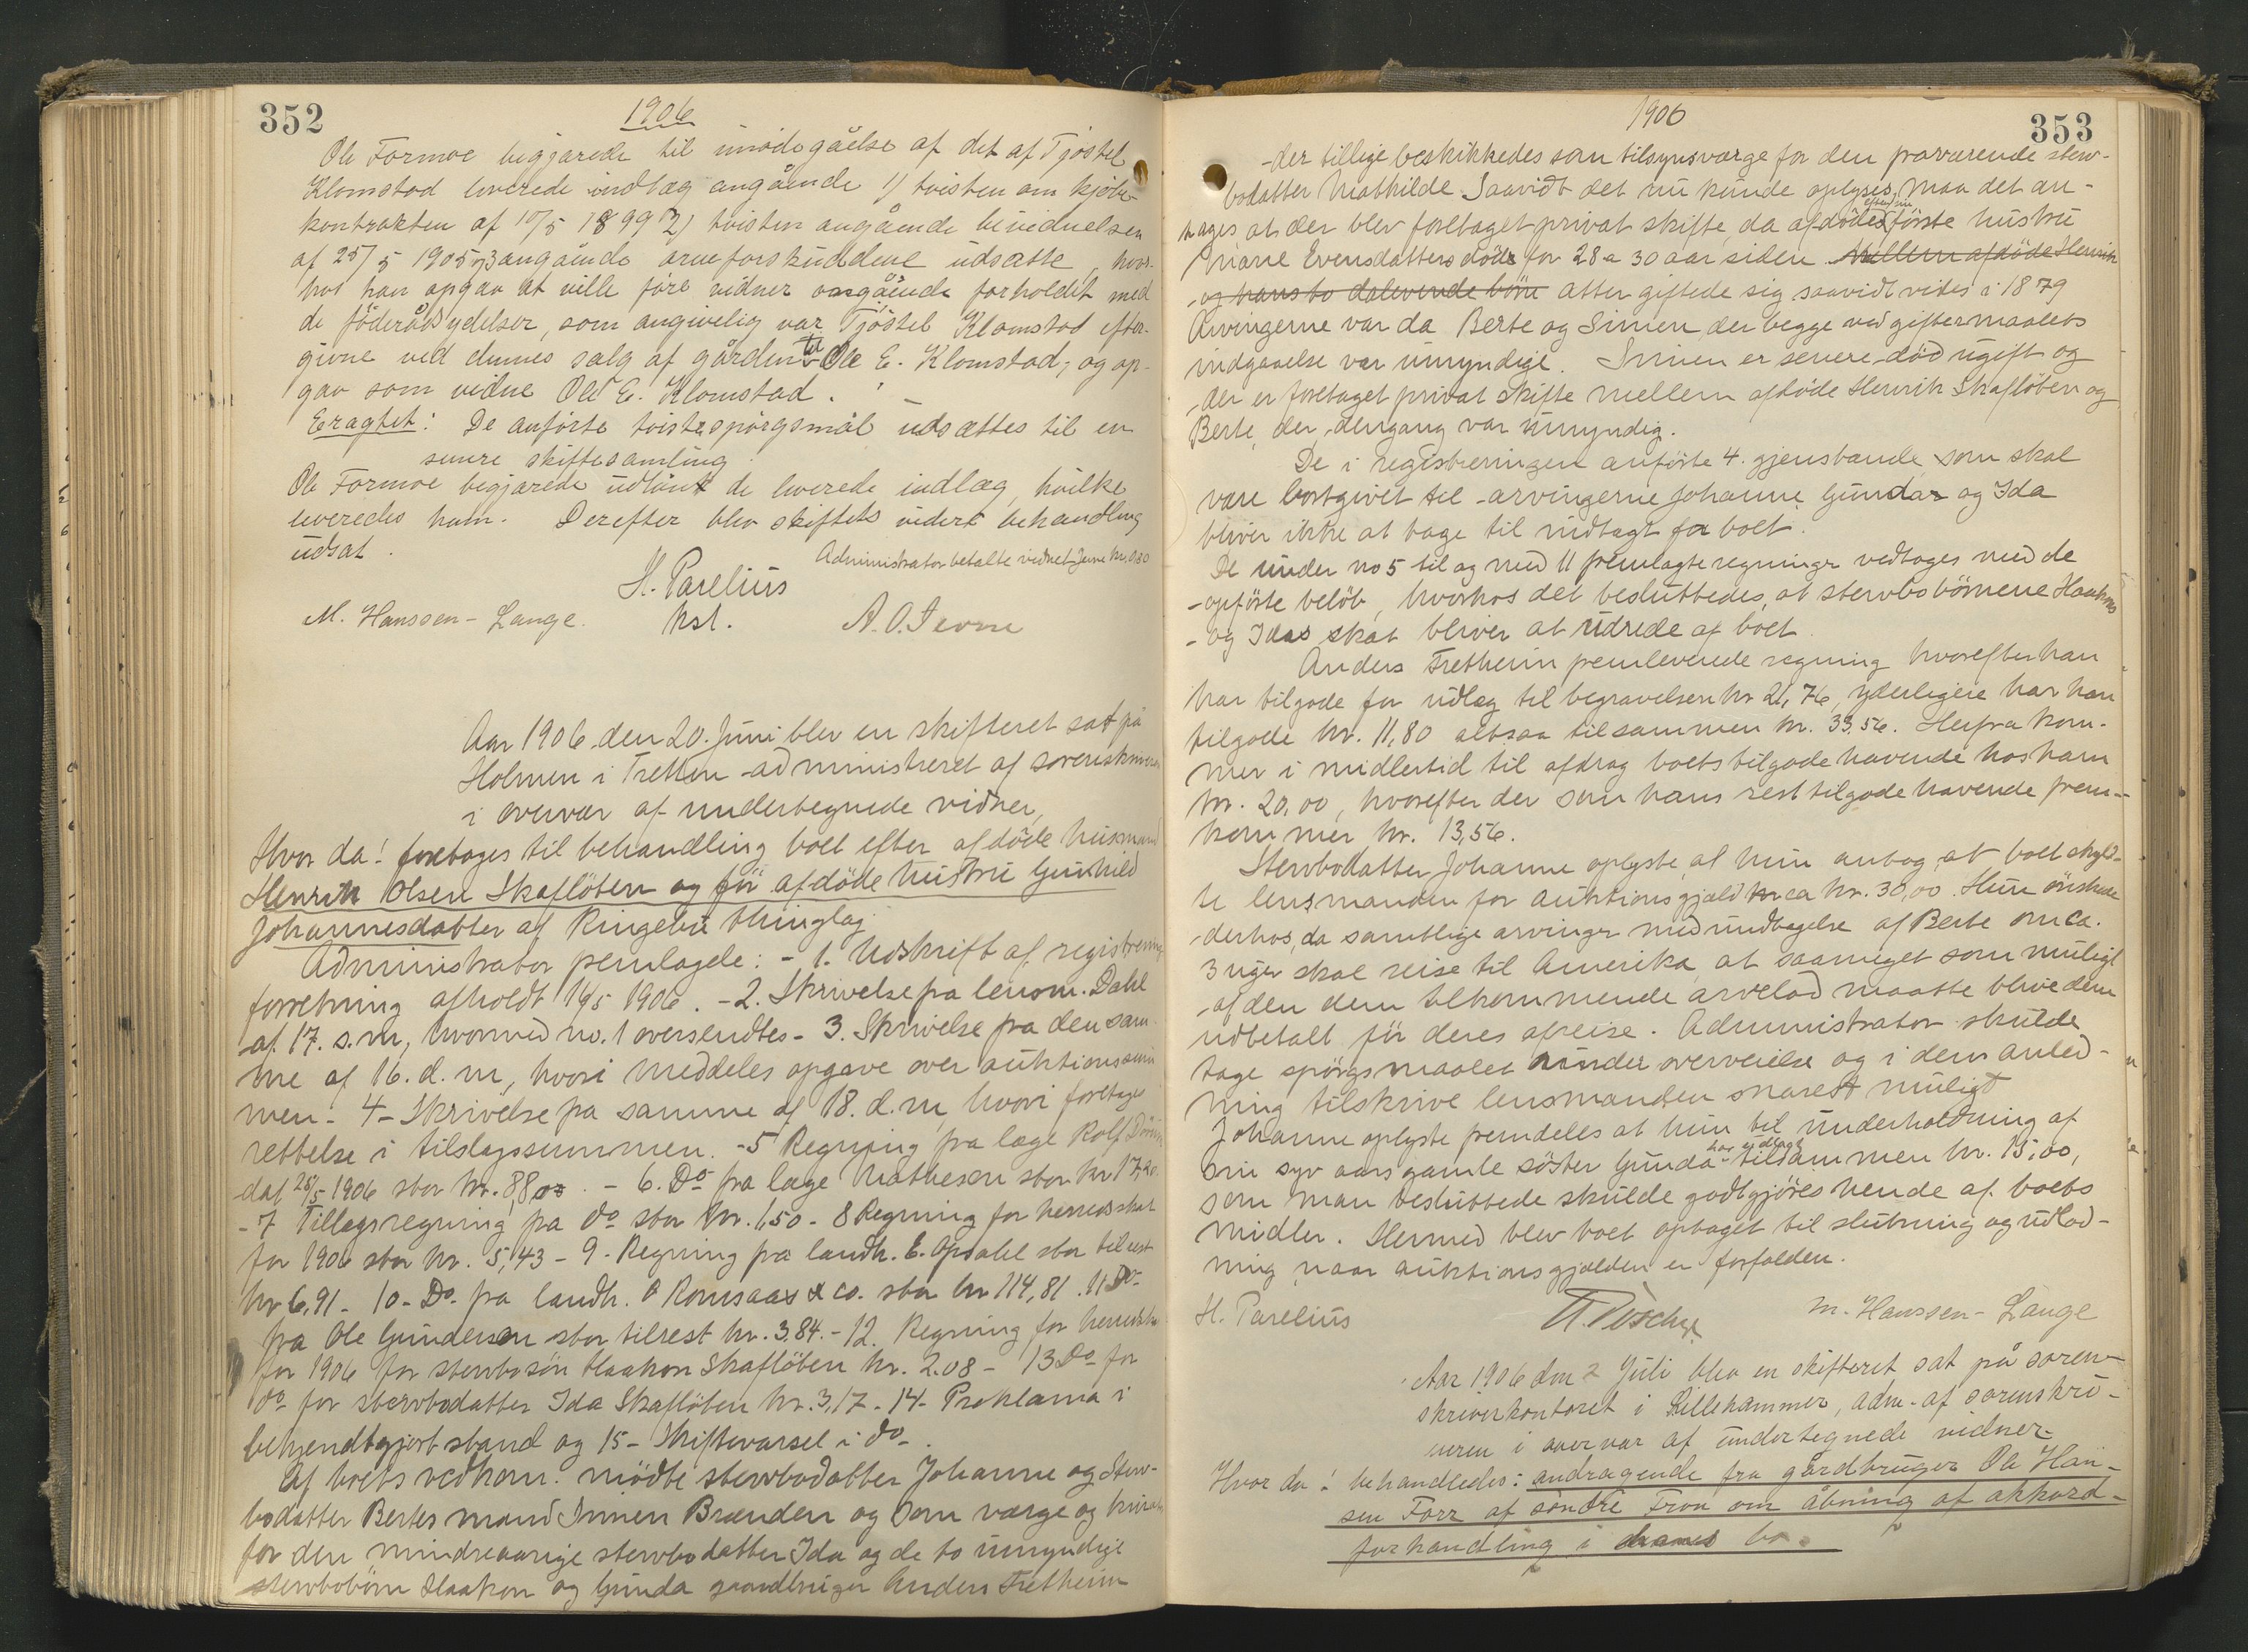 352
1906
Ole Formoe begjærede til imødegåelse af det af Tjøstel
Klomstad leverede indlæg angående 1) tvisten om kjöbe-
kontrakten af 10/5 1899 2) tvisten angående bevidnelsen
af 25/5 1905 3 angående arveforskuddene udsatte, hvor-
hos han opgav at ville före vidner angående forholdet med
de föderådsydelser, som angivelig var Tjöstel Klomstad efter-
givne ved dennes salg af gården til Ole E. Klomstad, og op-
gav som vidne Ole E. Klomstad.
Eragtet: De anförte tvistespörgsmål udsættes til en
senere skiftesamling
Ole Formoe begjærede udlånt de leverede indlæg, hvilke
leveredes ham. Derefter blev skiftets videre behandling
udsat.
Administrator betalte vidnet Jevne kr. 0.80
H. Parelius
kst.
M. Hanssen-Lange.
A. O. Jevne
Aar 1906 den 20. Juni blev en skifteret sat på
Holmen i Tretten administreret af sorenskriveren
i overvær af undertegnede vidner,
Hvor da! foretoges til behandling boet efter afdöde husmand
Henrik Olsen Skaflöten og för afdöde hustru Gunhild
Johannesdatter af Ringebu thinglag.
Administrator fremlagde: - 1. Udskrift af registrerings
forretning afholdt 16/5 1906. - 2. Skrivelse fra lensm. Dahl
af 17. s.m, hvorved no. 1 oversendtes - 3. Skrivelse fra den sam-
me af 16. d. m, hvori meddeles opgave over auktionssum
men - 4 - Skrivelse fra samme af 18. d. m, hvori foretages
rettelse i tilslagssummen. - 5 Regning fra læge Rolf
dat 28/5 1906 stor kr. 88,00. - 6. Do fra læge Mathesen stor kr 17,20
- 7 Tillægsregning fra do stor kr. 1,50 - 8 Regning for herredsskat
for 1906 stor kr. 5,43 - 9 - Regning fra landh. E. Opsahl stor til rest
kr 6,91 - 10 - Do. fra landh. O Romsaas & co. stor kr 114,81. 11 Do-
fra Ole Gundersen stor tilrest kr. 3,84. - 12. Regning for herredsk
for 1906 for stervbosön Haakon Skaflöten kr. 2.08 - 13 Do for
do for stervbodatter Ida Skaflöten kr. 3,17 - 14 - Proklama i
bekjendtgjort stand og 15 - Skiftevarsel i do -.
Af boets vedkom. mödte stervbodatter Johanne og Sterv-
bodatter Bertes mand Simen Brænden og som værge og kurator
for den mindreaarige stervbodatter Ida og de to umyndige
stervbobörn Haakon og Gunda gaardbruger Anders Fretheim
353
1906
- der tillige beskikkedes som tilsynsværge for den fraværende sterv-
bodatter Mathilde. Saavidt det nu kunde oplyses, maa det an-
tages at der blev foretaget privat skifte, da afdödes förste hustru
efter sin
Marie Evensdatters död for 28 a 30 aar siden. Mellem afdöde Henrik
og hans to dalevende börn atter giftede sig saavidt vides i 1879
Arvingerne var da Berte og Simen, der begge ved giftermaalets
indgaaelse var umyndige. Simen er senere död ugift og
der er foretaget privat skifte mellem afdöde Henrik Skaflöten og
Berte, der dengang var umyndig.
De i registreringen anförte 4. gjenstande som skal
være bortgivet til arvingerne Johanne, Gunda og Ida
bliver ikke at tage til indtægt for boet.
De under no 5 til og med 11 fremlagte regninger vedtoges med de
opförte belöb, hvorhos det besluttedes, at stervbobörnene Haakons
- og Idas skat bliver at udrede af boet.
Anders Fretheim fremleverede regning hvorefter han
har tilgode for udlæg til begravelsen kr 21,76, yderligere har han
tilgode kr. 11,80 altsaa tilsammen kr. 33,56. Herfra kom-
mer i midlertid til afdrag boets tilgodehavende hos ham
kr. 20,00, hvorefter der som hans rest tilgodehavende frem-
kommer kr. 13,56.
Stervbodatter Johanne oplyste, at hun antog, at boet skyld-
te lensmanden for auktionsgjæld ca kr. 30,00. Hun önskede
derhos, da samtlige arvinger med undtagelse af Berte om ca.
3 uger skal reise til Amerika, at saameget som muligt
af den dem tilkommende arvelod maatte blive dem
udbetalt för deres afreise. Administrator skulde
tage spörgsmaalet under overveielse og i den anled-
ning tilskrive lensmanden snarest muligt
Johanne oplyste fremdeles at hun til underholdning af
sin syv aars gamle söster Gunda har udlagt tilsammen kr. 15,00,
som man besluttede skulde godtgjöres hende af boets
midler. Hermed blev boet optaget til slutning og udlod-
ning, naar auktionsgjælden er forfalden.
H. Parelius
M. Hanssen-Lange
Aar 1906 den 2 Juli blev en skifteret sat på soren-
skriverkontoret i Lillehammer, adm. af sorenskri-
veren i overvær af undertegnede vidner-
Hvor da! behandledes: andragende fra gårdbruger Ole Han-
sen Forr af söndre Fron om åbning af akkord-
forhandling i hans bo.